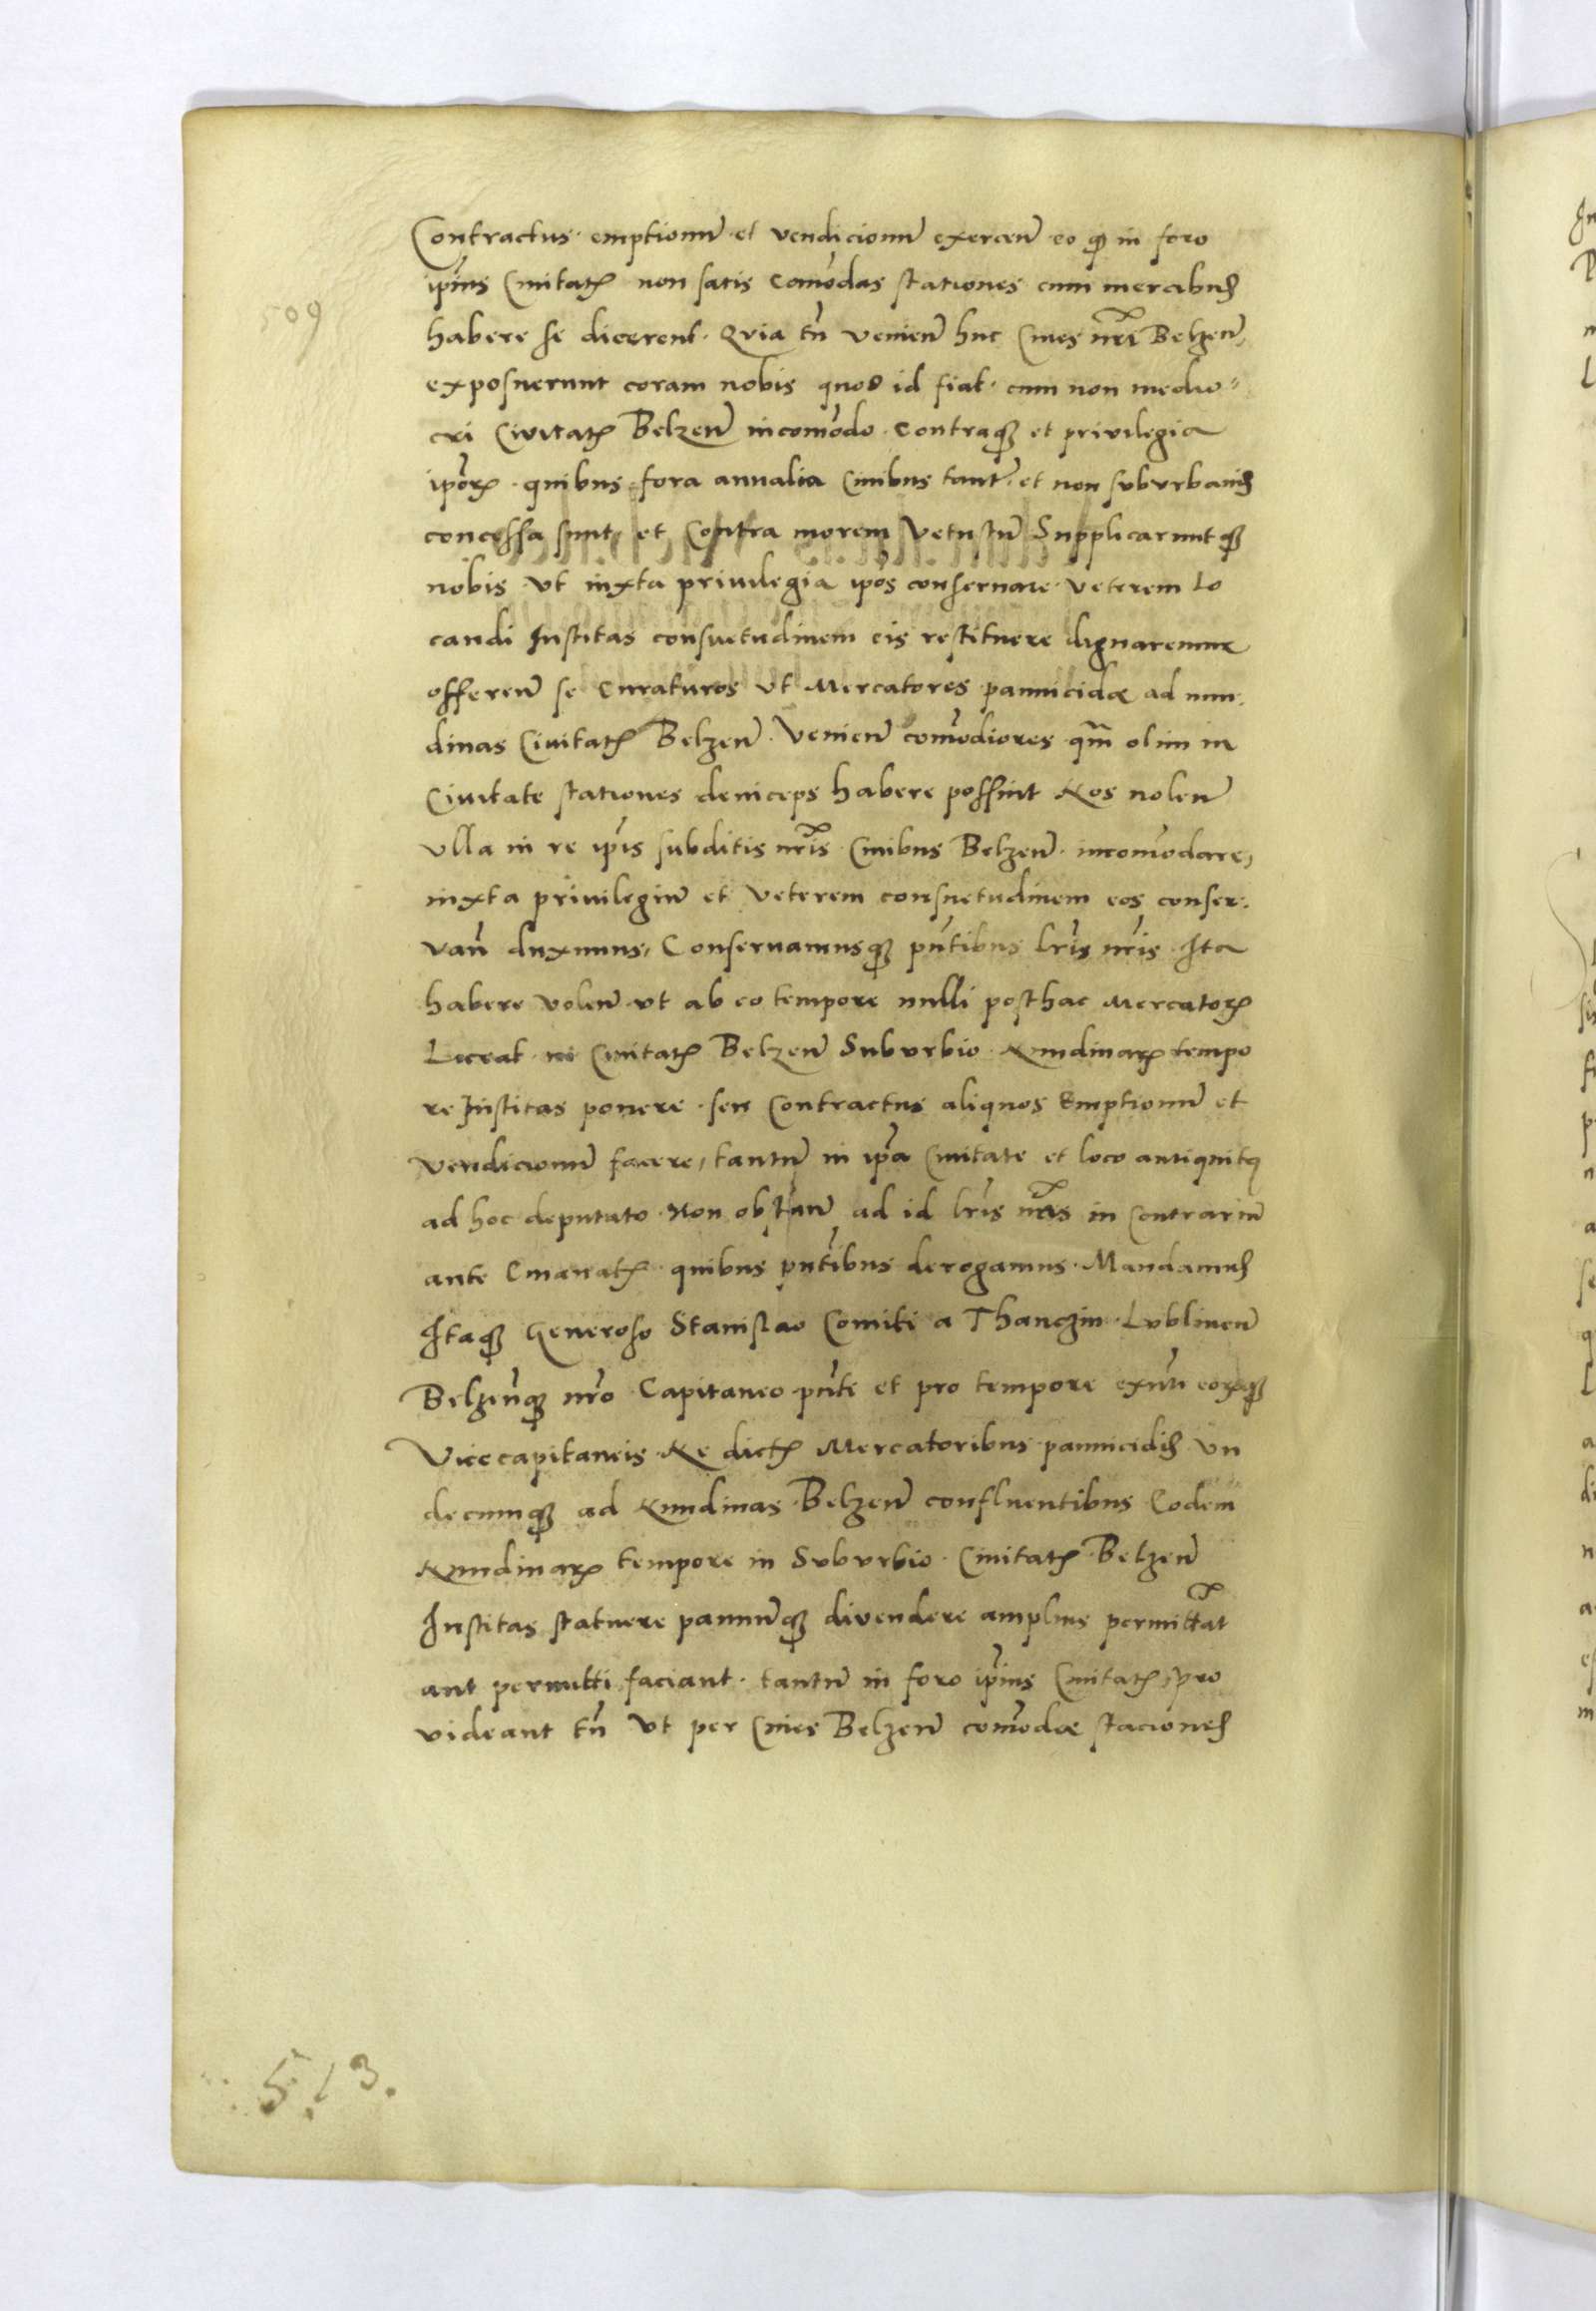 Contractus · emptionu̅ · et vendicionu̅ exercen̅ · eo ꝙ in foro
ip̅ius Ciuitatꝭ non satis com̅odas stationes cum mercibus
habere se dicerent · Qvia tn̅ venien̅ huc Ciues nr̅i Belzen̅,
exposuerunt coram nobis quod id fiat · cum non medio⸗
cri Civitatꝭ Belzen̅ incom̅odo · Contraqꝫ et privilegia
ip̅orꝝ · quibus · fora annalia Ciuibus tant̅ · et non subvrbanis
concessa sunt, et Contra morem Vetustu̅ Supplicaruntqꝫ
nobis vt iuxta priuilegia ip̅os conseruare · veterem lo
candi Institas consuetudinem eis restituere dignaremur
offeren̅ se Curaturos vt Mercatores pannicidæ ad nun:
dinas Civitatꝭ Belzen̅ · Venien̅ com̅odiores qm̅ olim in
Civitate stationes deniceps habere possint Nos nolen̅
vlla in re ip̅is subditis nr̅is · Ciuibus Belzen̅ · incom̅odare,
iuxta priuilegiu̅ et veterem consuetudinem eos conser:
van̅ duximus, Conseruamusqꝫ pn̅tibus lr̅is nr̅is · Ita
habere volen̅ vt ab eo tempore nulli posthac Mercatorꝝ
Liceat · in Ciuitatꝭ Belzen̅ Subvrbio · Nundinarꝝ tempo
re Institas ponere · seu Contractus aliquos Emptionu̅ et
vendicionu̅ facere, tantu̅ in ip̅a Ciuitate et loco antiquitꝰ
ad hoc deputato · Non obstan̅ ad id lr̅is nr̅is in Contrariu̅
ante Emanatꝭ · quibus pn̅tibus derogamus · Mandamus
Itaqꝫ Generoso Stanislao Comiti a Thanczin · Lvblinen̅
Belzen̅qꝫ nr̅o · Capitaneo pn̅te et pro tempore exn̅ti eorꝝqꝫ
Vicecapitaneis · Ne dictꝭ Mercatoribus pannicidis vn
decumqꝫ ad Nundinas · Belzen̅ confluentibus Eodem
Nundinarꝝ tempore in Svbvrbio · Ciuitatꝭ · Belzen̅
Institas statuere pannu̅qꝫ divendere amplius permitta̅t
aut permitti faciant · tantu̅ in foro ip̅ius Ciuitatꝭ, pro
videant tn̅ vt per Ciues Belzen̅ com̅odæ staciones
509
513.